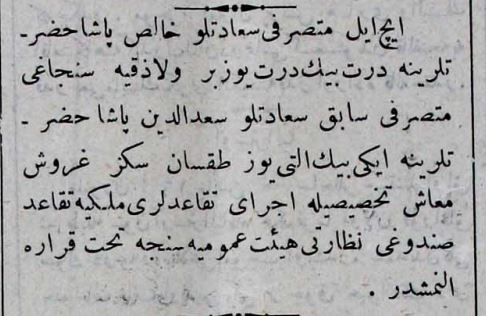 ایچ ایل متصرفی سعادتلو خالص پاشا حضر-
تلرینه درت بیك درت یوز بر ولاذقیه سنجاغی
متصرفی سابق سعادتلو سعدالدین پاشا حضر -
تلرینه ایکی بیك التی یوز طقسان سکز غروش
معاش تخصیصیله اجرای تقاعدلری ملکیه تقاعد
صندوغی نظارتی هیئت عمومیه سنجه تحت قراره
النمشدر .